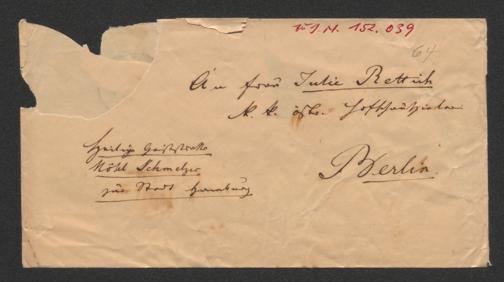 I. N. 152.039
64
An Frau Julie Rettich
k. k. östr. Hofschauspielerin
Berlin
Heilige Geiststraße
Hôtel Schmelzer
zur Stadt Hamburg